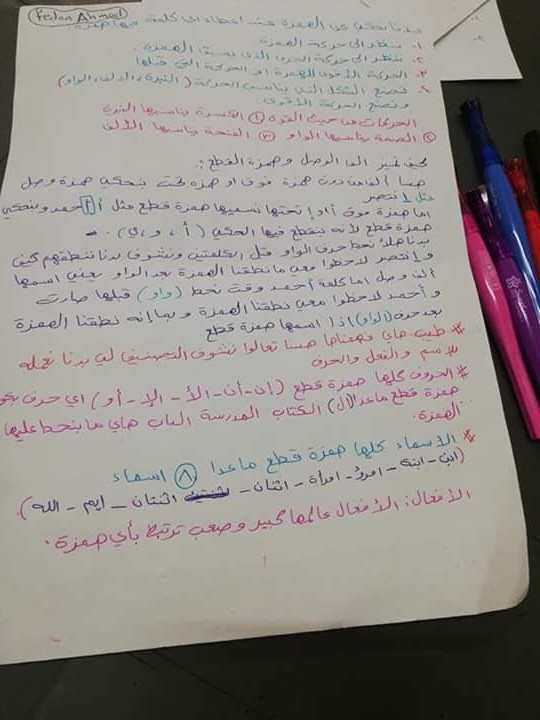 Fedaa Ahmed
بدنا نحكي عن الهمزة عند اعطاء اي كلمة فيها همزة
١. ننظر الى حركة الهمزة
٢. ننظر الى حركة الحرف الذي يسبق الهمزة.
٣. الحركة الأقوى للهمزة او الحركة التي قبلها
٤. نضع الشكل الذي يناسب الحركة (النبرة، الالف، الواو)
ونضع الحركة الأقوى
الحركات من حيث القوة ① الكسرة يناسبها النبرة
② الضمة يناسبها الواو ③ الفتحة يناسبها الألف
كيف نميز الف الوصل وهمزة القطع:
هسا ألف من دون همزة فوق او همزة تحت بنحكي همزة وصل
مثل انتصر
اما همزة فوق أ او إ تحتها نسميها همزة قطع مثل أحمد وبنحكي
همزة قطع لأنه بنقطع فيها الحكي (أ، و، ي).
بدنا هلأ نحط حرف الواو قبل الكلمتين ونشوف بدنا ننطقهم كيف
وانتصر لاحظوا معي ما نطقنا الهمزة بعد الواو يعني اسمها
ألف وصل اما كلمة أحمد وقت نحط (واو) قبلها صارت
وأحمد لاحظوا معي نطقنا الهمزة وبما إنه نطقنا الهمزة
بعد حرف (الواو) إذا اسمها همزة قطع
* طيب هاي فهمناها هسا تعالوا نشوف التصنيف لي بدنا نعمله
للاسم والفعل والحرف
* الحروف كلها همزة قطع (إن - أن - ألا - إلا - أو) اي حرف
همزة قطع ما عدا (ال) الكتاب المدرسة الباب هاي ما بنحط عليها
الهمزة.
* الاسماء كلها همزة قطع ما عدا ⑧ اسماء
(ابن - ابنة - امرؤ - امرأة - اثنان - اثنتان - ايم - الله).
الأفعال: الأفعال عالمها كبير وصعب ترتبط بأي همزة.